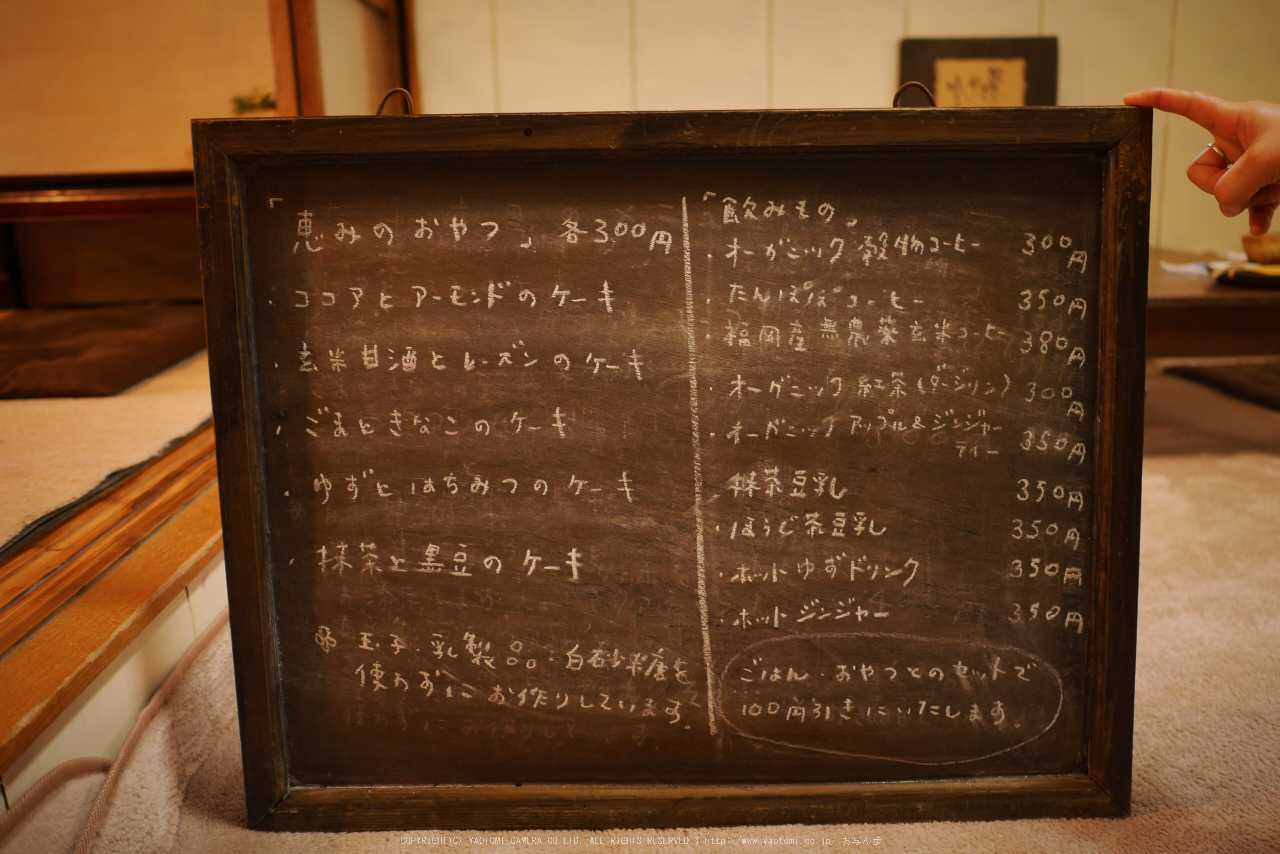 「恵みのおやつ」各300円
・ココアとアーモンドのケーキ
・玄米甘酒とレーズンのケーキ
・ごまときなこのケーキ
・ゆずとはちみつのケーキ
・抹茶と黒豆のケーキ
玉子・乳製品・白砂糖を
使わずにお作りしています。
「飲みもの」
・オーガニック穀物コーヒー 300円
・たんぽぽコーヒー 350円
・福岡産無農薬玄米コーヒー 380円
・オーガニック紅茶(ダージリン) 300円
・オーガニックアップル&ジンジャー
ティー 350円
・抹茶豆乳 350円
・ほうじ茶豆乳 350円
・ホットゆずドリンク 350円
・ホットジンジャー 350円
ごはん・おやつとのセットで
100円引きにいたします。
COPYRIGHT(C) YAOTOMI CAMERA CO.LTD ALL RIGHTS RESERVED & http://www.yaotomi.co.jp/ お写ん歩